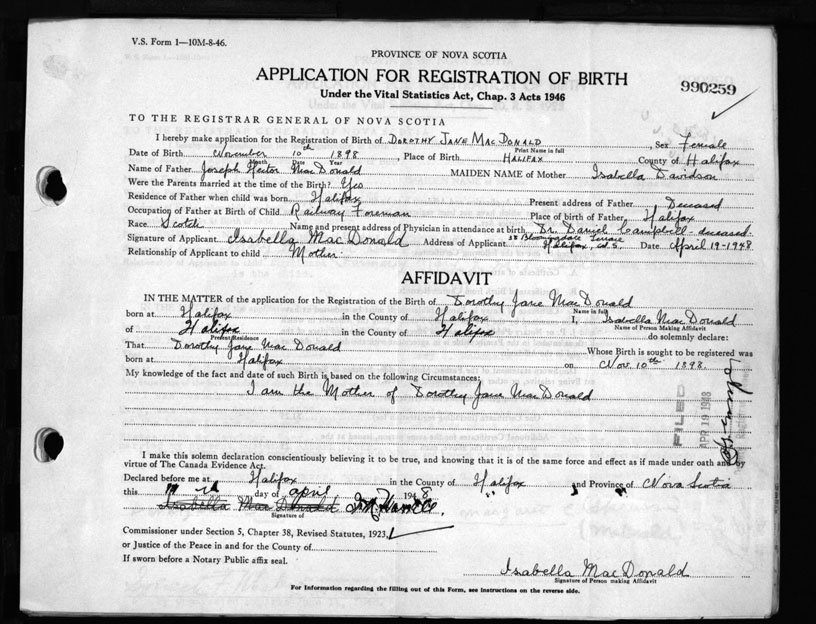 V.S. Form 1—10M-8-46.
PROVINCE OF NOVA SCOTIA
APPLICATION FOR REGISTRATION OF BIRTH
990259
Under the Vital Statistics Act, Chap. 3 Acts 1946
TO THE REGISTRAR GENERAL OF NOVA SCOTIA
I hereby make application for the Registration of Birth of DOROTHY JANE MACDONALD, Sex Female
Print Name in full
Date of Birth November 10th 1898, Place of Birth HALIFAX County of Halifax
Month Date Year
Name of Father Joseph Hector MacDonald MAIDEN NAME of Mother Isabella Davidson
Were the Parents married at the time of the Birth? Yes
Residence of Father when child was born Halifax Present address of Father Deceased
Occupation of Father at Birth of Child Railway Foreman Place of birth of Father Halifax
Race Scotch Name and present address of Physician in attendance at birth Dr. Daniel Campbell - deceased.
Signature of Applicant Isabella MacDonald Address of Applicant 58 Bloomingdale Terrace Halifax, N.S. Date April 19-1948
Relationship of Applicant to child Mother.
AFFIDAVIT
IN THE MATTER of the application for the Registration of the Birth of Dorothy Jane MacDonald
Name in full
born at Halifax in the County of Halifax I, Isabella MacDonald
Name of Person Making Affidavit
of Halifax in the County of Halifax do solemnly declare:
Present Residence
That Dorothy Jane MacDonald Whose Birth is sought to be registered was
born at Halifax on Nov. 10th 1898.
My knowledge of the fact and date of such Birth is based on the following Circumstances:
I am the Mother of Dorothy Jane MacDonald
FILED
APR 19 1948
I make this solemn declaration conscientiously believing it to be true, and knowing that it is of the same force and effect as if made under oath and by
virtue of The Canada Evidence Act.
Declared before me at Halifax in the County of Halifax and Province of Nova Scotia
this day of April 1948
Isabella MacDonald
Signature of
Commissioner under Section 5, Chapter 38, Revised Statutes, 1923,
or Justice of the Peace in and for the County of
If sworn before a Notary Public affix seal.
Isabella MacDonald
Signature of Person making Affidavit
For Information regarding the filling out of this Form, see instructions on the reverse side.